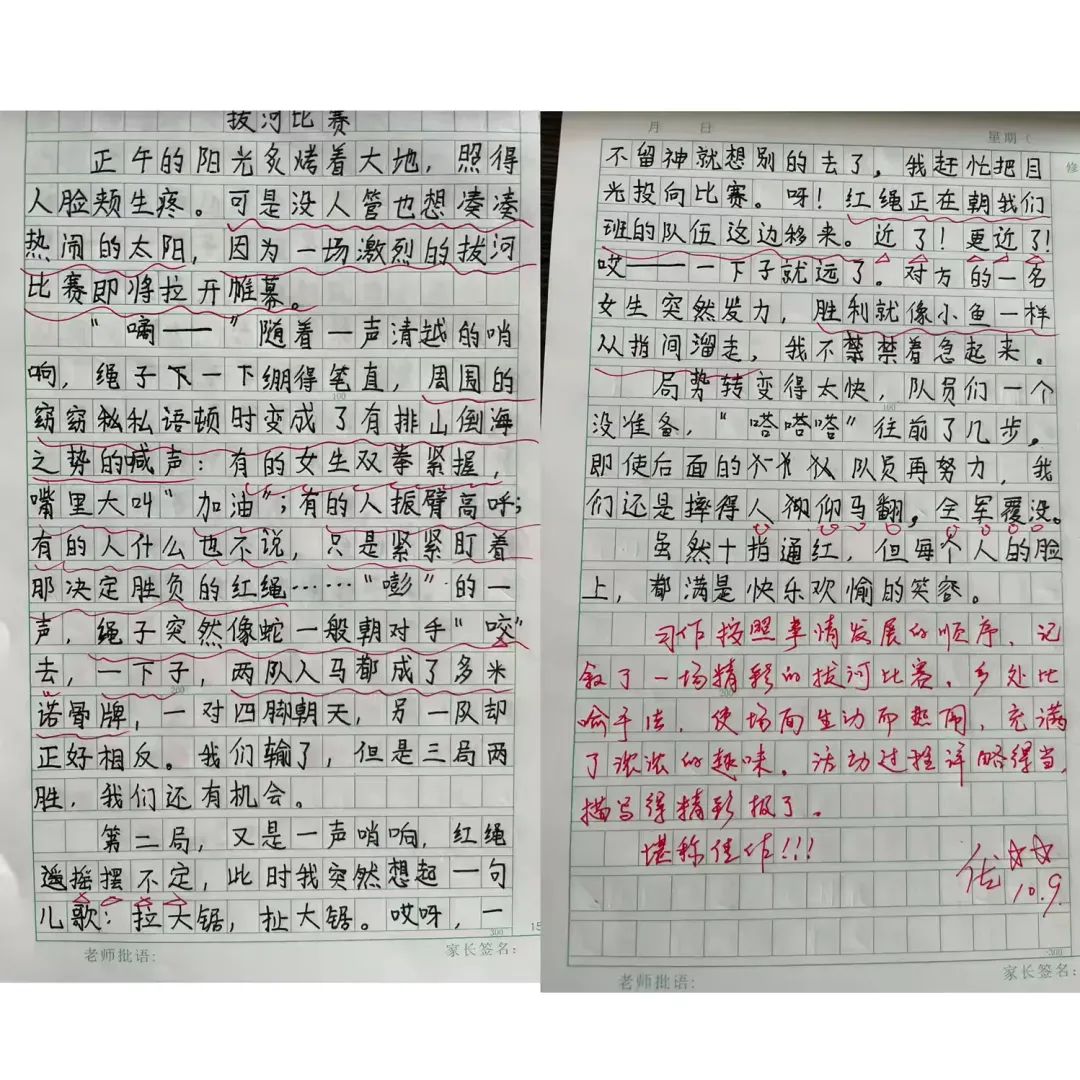 拔河比赛
正午的阳光炙烤着大地，照得
人脸颊生疼。可是没人管也想凑凑
热闹的太阳，因为一场激烈的拔河
比赛即将拉开帷幕。
“嘀——”随着一声清越的哨
响，绳子下一下绷得笔直，周围的
窃窃私私语顿时变成了有排山倒海
之势的喊声：有的女生双拳紧握，
嘴里大叫“加油”；有的人振臂高呼；
有的人什么也不说，只是紧紧盯着
那决定胜负的红绳……“嘭”的一
声，绳子突然像蛇一般朝对手“咬”
去，一下子，两队人马都成了多米
诺骨牌，一对四脚朝天，另一队却
正好相反。我们输了，但是三局两
胜，我们还有机会。
第二局，又是一声哨响，红绳
遥摇摆不定，此时我突然想起一句
儿歌：拉大锯，扯大锯。哎呀，一
300
老师批语：
家长签名：
月 日
星期（
修
不留神就想别的去了，我赶忙把目
光投向比赛。呀！红绳正在朝我们
班的队伍这边移来。近了！更近了！
哎——一下子就远了。对方的一名
女生突然发力，胜利就像小鱼一样
从指间溜走，我不禁禁着急起来。
局势转变得太快，队员们一个
100
没准备，“嗒嗒嗒”往前了几步，
即使后面的队员再努力，我
们还是摔得人仰马翻，全军覆没。
虽然十指通红，但每个人的脸
上，都满是快乐欢愉的笑容。
习作按照事情发展的顺序，记
叙了一场精彩的拔河比赛，多处比
喻手法，使场面生动而热闹，充满
了浓浓的趣味。活动过程详略得当，
描写得精彩极了。
堪称佳作！！！
优☆☆
10.9.
300
老师批语：
家长签名：